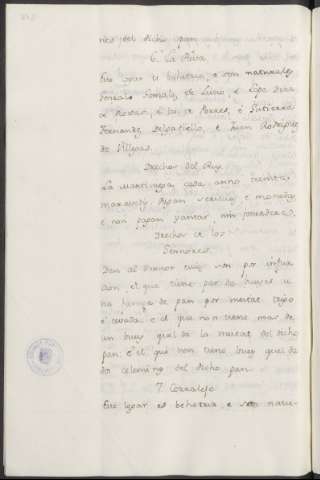 del dicho pan.
6. La Riva
Este logar es behetria, e son naturales
Gonzalo Gonzalez de Lucio, e Lope Diaz
de Rozas, e Lei de Porres, e Gutierre
Fernandez Delpatiello, e Juan Rodriguez
de Villegas.
Drechos del Rey
La Martiniega cada anno treinta
maravedis. Pagan servicios e monedas,
e non pagan yantar, nin fonsadera.
Drechos de los
Sennores.
Dan al Sennor cuyos son por infur
cion el que tiene par de bueyes u
na fanega de pan por mentat trigo
e cevada: e el que non tiene mas de
un buey quel da la meetat del dicho
pan. e el que non tiene buey quel da
do celemines del dicho pan.
7. Corralejo
Este logar es behetria, e son natu-